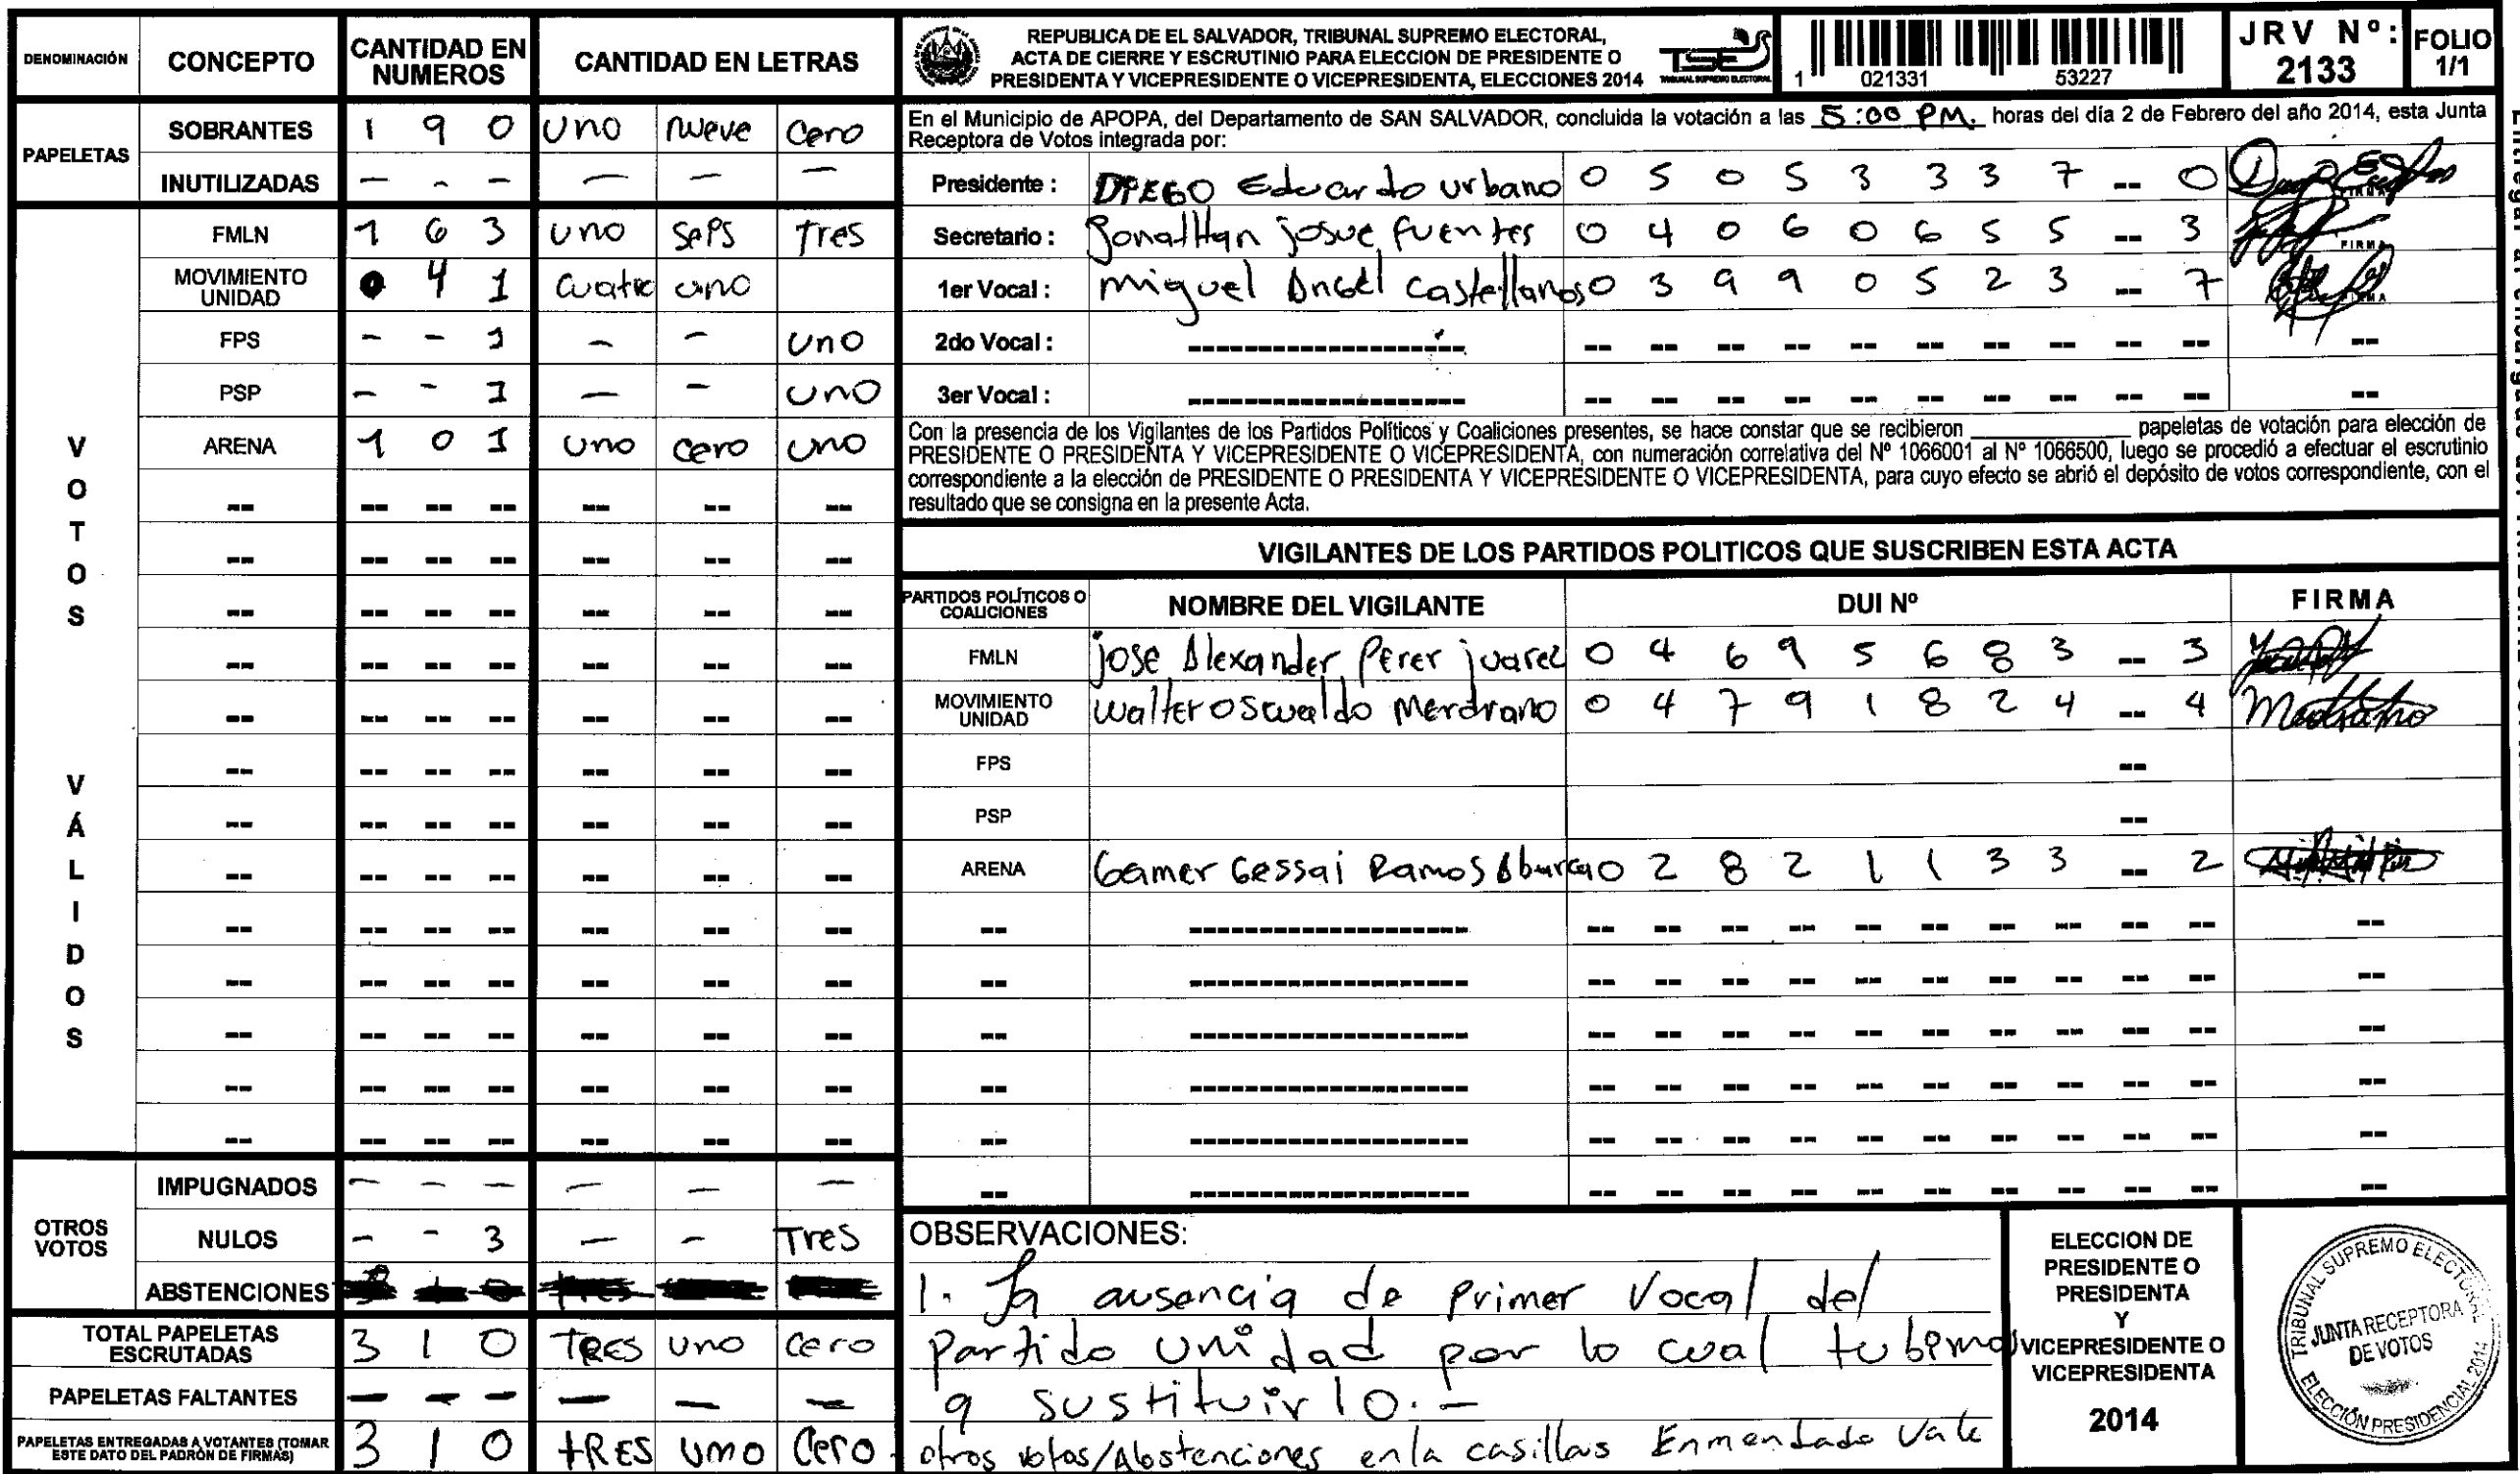 DENOMINACIÓN CONCEPTO CANTIDAD EN NUMEROS CANTIDAD EN LETRAS
PAPELETAS
SOBRANTES 1 9 0 uno nueve cero
INUTILIZADAS - - - - - -
VOTOS VÁLIDOS
FMLN 1 6 3 uno seis tres
MOVIMIENTO UNIDAD 0 4 1 cuatro uno
FPS - - 1 - - uno
PSP - - 1 - - uno
ARENA 1 0 1 uno cero uno
-- -- -- -- -- -- --
-- -- -- -- -- -- --
-- -- -- -- -- -- --
-- -- -- -- -- -- --
-- -- -- -- -- -- --
-- -- -- -- -- -- --
-- -- -- -- -- -- --
-- -- -- -- -- -- --
-- -- -- -- -- -- --
-- -- -- -- -- -- --
-- -- -- -- -- -- --
-- -- -- -- -- -- --
-- -- -- -- -- -- --
OTROS VOTOS
IMPUGNADOS - - - - - -
NULOS - - 3 - - Tres
ABSTENCIONES
TOTAL PAPELETAS ESCRUTADAS 3 1 0 TRES uno cero
PAPELETAS FALTANTES - - - - - -
PAPELETAS ENTREGADAS A VOTANTES (TOMAR ESTE DATO DEL PADRÓN DE FIRMAS) 3 1 0 tRES uno cero
REPUBLICA DE EL SALVADOR, TRIBUNAL SUPREMO ELECTORAL,
ACTA DE CIERRE Y ESCRUTINIO PARA ELECCION DE PRESIDENTE O
PRESIDENTA Y VICEPRESIDENTE O VICEPRESIDENTA, ELECCIONES 2014
TSE
TRIBUNAL SUPREMO ELECTORAL
1 021331 53227
JRV Nº: 2133
FOLIO 1/1
En el Municipio de APOPA, del Departamento de SAN SALVADOR, concluida la votación a las 5:00 PM. horas del día 2 de Febrero del año 2014, esta Junta
Receptora de Votos integrada por:
Presidente : DIEGO Eduardo urbano 0 5 0 5 3 3 3 7 -- 0 FIRMA
Secretario : Jonathan josue fuentes 0 4 0 6 0 6 5 5 -- 3 FIRMA
1er Vocal : miguel Angel Castellanos 0 3 9 9 0 5 2 3 -- 7 FIRMA
2do Vocal : -------------------- -- -- -- -- -- -- -- -- -- -- --
3er Vocal : -------------------- -- -- -- -- -- -- -- -- -- -- --
Con la presencia de los Vigilantes de los Partidos Políticos y Coaliciones presentes, se hace constar que se recibieron ________ papeletas de votación para elección de
PRESIDENTE O PRESIDENTA Y VICEPRESIDENTE O VICEPRESIDENTA, con numeración correlativa del Nº 1066001 al Nº 1066500, luego se procedió a efectuar el escrutinio
correspondiente a la elección de PRESIDENTE O PRESIDENTA Y VICEPRESIDENTE O VICEPRESIDENTA, para cuyo efecto se abrió el depósito de votos correspondiente, con el
resultado que se consigna en la presente Acta.
VIGILANTES DE LOS PARTIDOS POLITICOS QUE SUSCRIBEN ESTA ACTA
PARTIDOS POLÍTICOS O COALICIONES NOMBRE DEL VIGILANTE DUI Nº FIRMA
FMLN jose Alexander Perez juarez 0 4 6 9 5 6 8 3 -- 3
MOVIMIENTO UNIDAD Walter Oswaldo Merdrano 0 4 7 9 1 8 2 4 -- 4
FPS --
PSP --
ARENA Gamer Gessai Ramos Aburgo 0 2 8 2 1 1 3 3 -- 2
-- -------------------- -- -- -- -- -- -- -- -- -- -- --
-- -------------------- -- -- -- -- -- -- -- -- -- -- --
-- -------------------- -- -- -- -- -- -- -- -- -- -- --
-- -------------------- -- -- -- -- -- -- -- -- -- -- --
-- -------------------- -- -- -- -- -- -- -- -- -- -- --
-- -------------------- -- -- -- -- -- -- -- -- -- -- --
OBSERVACIONES:
1. la ausencia de Primer Vocal del
Partido Unidad por lo cual tubimos
a sustituirlo.-
otros votos/Abstenciones en la casillas Enmendado Vale
ELECCION DE
PRESIDENTE O
PRESIDENTA
Y
VICEPRESIDENTE O
VICEPRESIDENTA
2014
TRIBUNAL SUPREMO ELECTORAL
JUNTA RECEPTORA
DE VOTOS
ELECCIÓN PRESIDENCIAL 2014